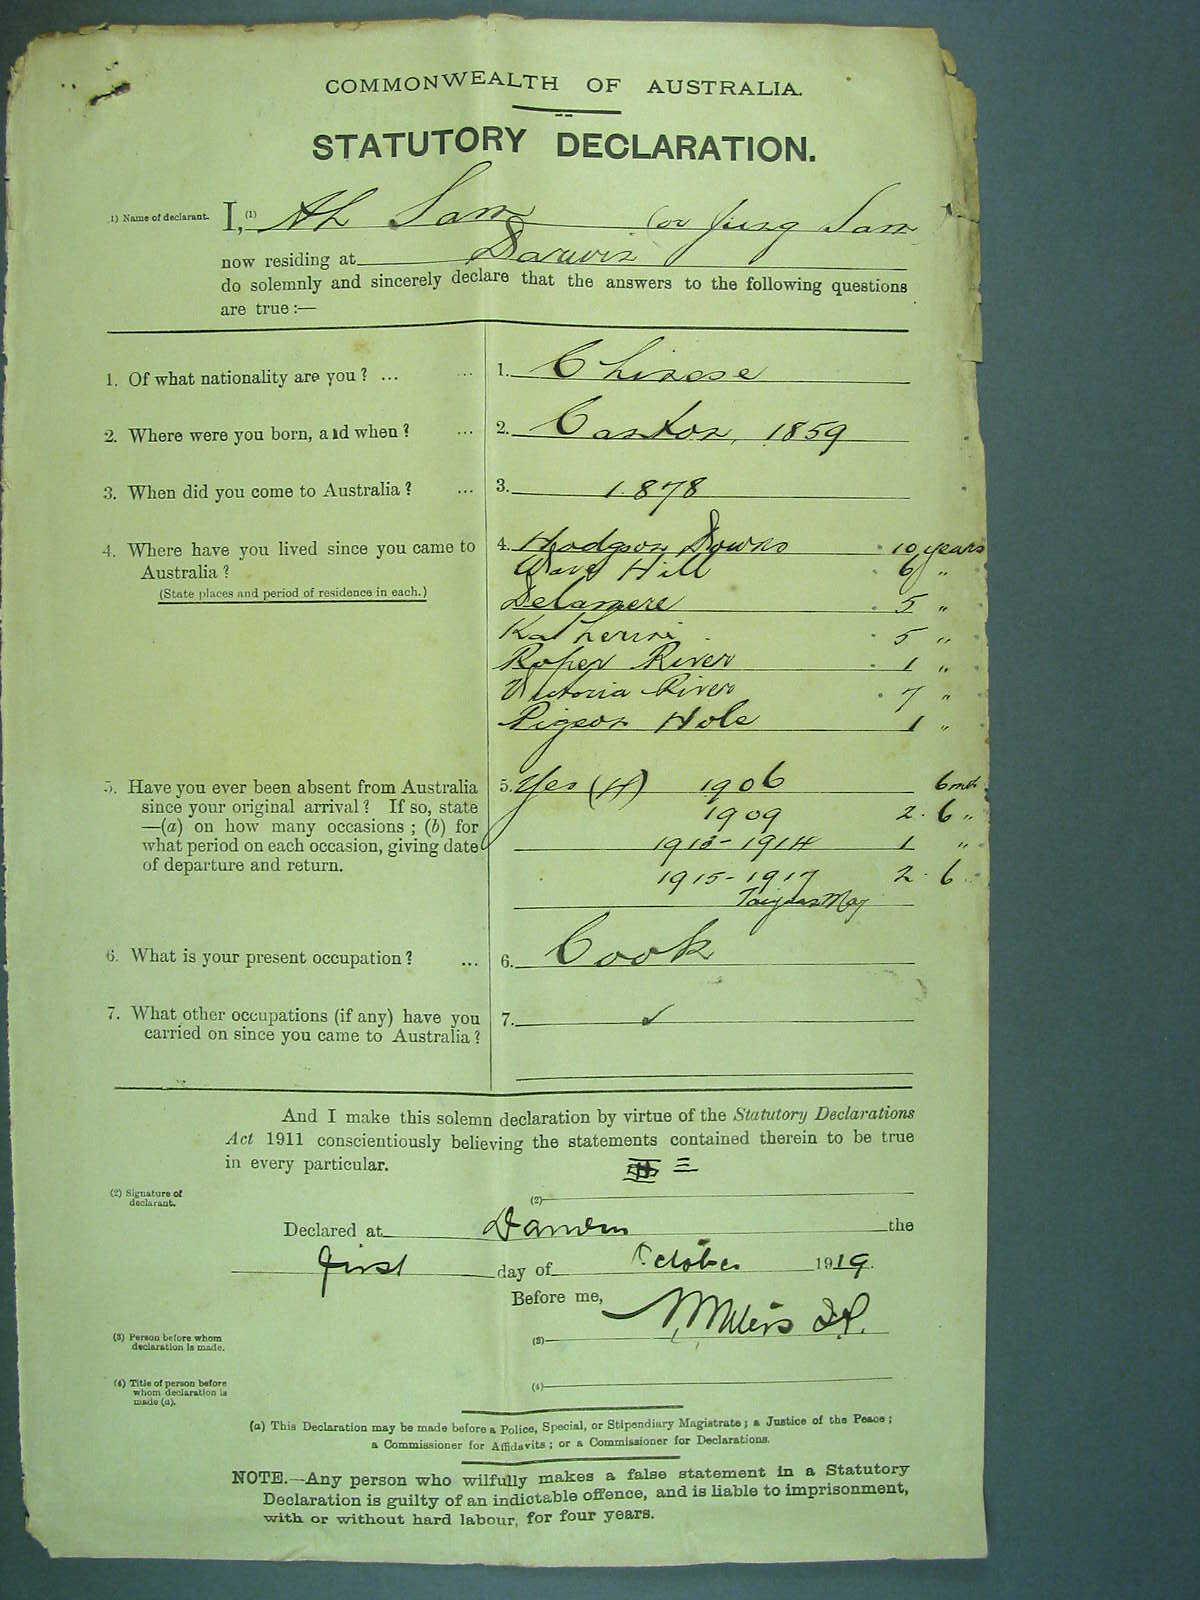 COMMONWEALTH OF AUSTRALIA.
STATUTORY DECLARATION.
1) Name of declarant. I, (1) Ah Sam (or Jung Sam
now residing at Darwin
do solemnly and sincerely declare that the answers to the following questions
are true:—
1. Of what nationality are you? ... ... 1. Chinese
2. Where were you born, and when? ... 2. Canton, 1859
3. When did you come to Australia? ... 3. 1878
4. Where have you lived since you came to 4. Hodgson Downs 10 years
Australia? Wave Hill 6 "
(State places and period of residence in each.) Delamere 5 "
Katherine 5 "
Roper River 1 "
Victoria River 7 "
Pigeon Hole 1 "
5. Have you ever been absent from Australia 5. Yes (4) 1906 6 mth
since your original arrival? If so, state 1909 2. 6 "
—(a) on how many occasions; (b) for
what period on each occasion, giving date 1913-1914 1 "
of departure and return. 1915-1917 2. 6
6. What is your present occupation? ... 6. Cook
7. What other occupations (if any) have you 7.
carried on since you came to Australia?
And I make this solemn declaration by virtue of the Statutory Declarations
Act 1911 conscientiously believing the statements contained therein to be true
in every particular.
(2) Signature of (2)
declarant.
Declared at Darwin the
first day of October 1919.
Before me,
(3) Person before whom (3) J.P.
declaration is made.
(4) Title of person before (4)
whom declaration is
made (a).
(a) This Declaration may be made before a Police, Special, or Stipendiary Magistrate; a Justice of the Peace;
a Commissioner for Affidavits; or a Commissioner for Declarations.
NOTE.—Any person who wilfully makes a false statement in a Statutory
Declaration is guilty of an indictable offence, and is liable to imprisonment,
with or without hard labour, for four years.